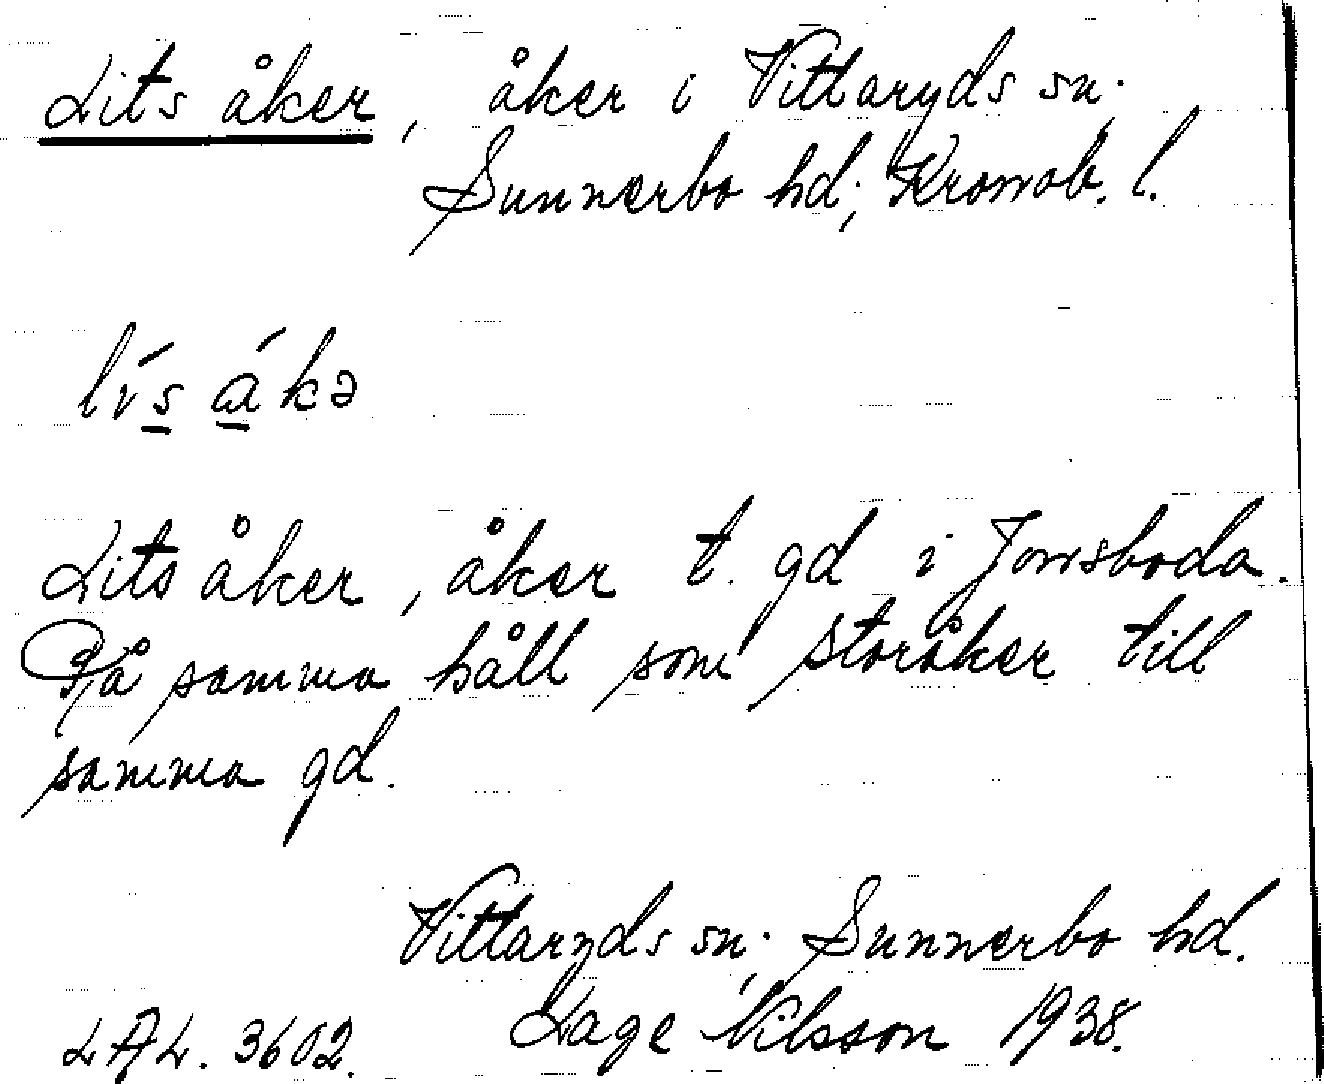 Lits åker, åker i Vittaryds sn.
Sunnerbo hd, Kronob. l.
Lits åker, åker t. gd i Jonsboda.
På samma håll som storåker till
samma gd.
Vittaryds sn, Sunnerbo hd.
LAL. 3602. Lage Nilsson 1938.